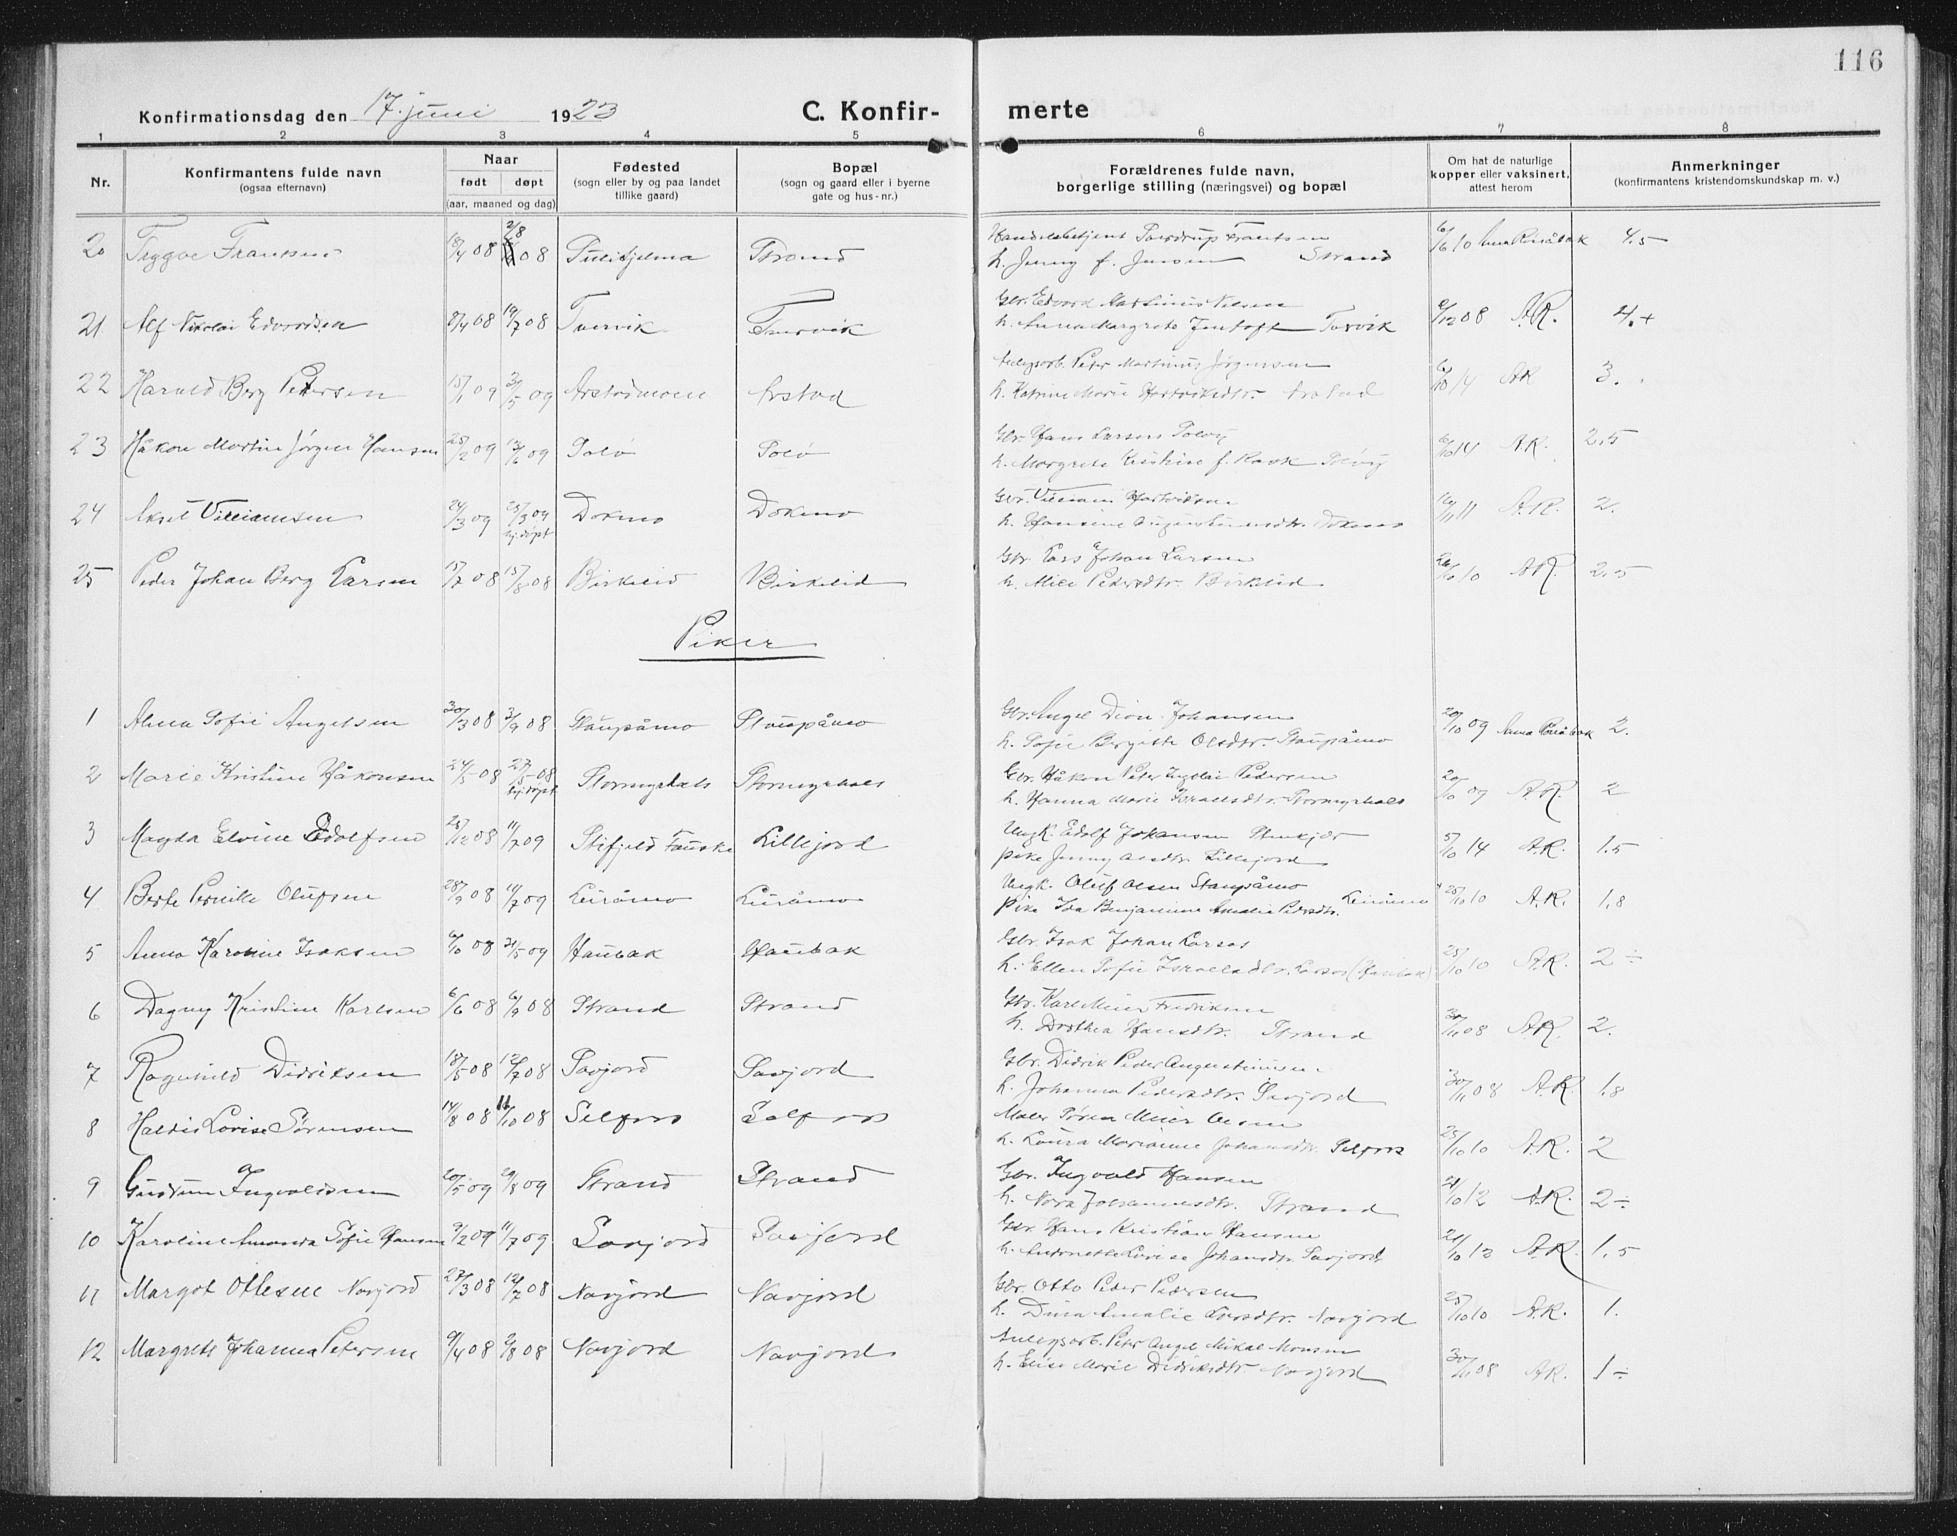 116
Konfirmationsdag den 17. juni 1923 C. Konfir- merte
1 2 3 4 5 6 7 8
Nr. Konfirmantens fulde navn (ogsaa efternavn) Naar født døpt (aar, maaned og dag) Fødested (sogn eller by og paa landet tillike gaard) Bopæl (sogn og gaard eller i byerne gate og hus-nr.) Forældrenes fulde navn, borgerlige stilling (næringsvei) og bopæl Om hat de naturlige kopper eller vaksinert, attest herom Anmerkninger (konfirmantens kristendomskundskap m. v.)
20 Tryggve Frantsen 18/4 08 08 Sulitjelma Strand
h. Jenny f. Jensen Strand 4.5
21 Alf Nikolai Edvardsen 8/4 08 19/7 08 Tvervik Tvervik Gbr. Edvard Martinius Nilsen
h. Anna Margrete Jentoft Tvervik 9/12 08 A.R. 4.+
22 Harald Berg Petersen 15/1 09 31/5 09 Arstadmoen Arstad Peter Martinus Jørgensen
h. Katrine Marie Hartviksdtr. Arstad AR 3.
23 Håkon Martin Jørgen Hansen 25/2 09 09 Solø Solø Gbr. Hans Larsen
h. Margrete Kristine f. Rask A.R. 2.5
24 Aksel Villiamsen 24/3 09 25/3 09 hj.døpt Dokmo Dokmo Gbr. Villiam Hartviksen
h. Hansine Augustinusdtr. Dokmo 11 A.R. 2.
25 Peder Johan Berg Larsen 15/7 08 15/8 08 Birkelid Birkelid Gbr. Lars Johan Larsen
h. Mile Pedersdtr. Birkelid 26/10 10 A.R. 2.5
Piker
1 Alma Sofie Angelsen 30/3 08 3/9 08 Staupåmo Staupåmo Gbr. Angel Dion Johansen
h. Sofie Bergitte Olsdtr. Staupåmo 20/10 09 Anna Risåbak 2.
2 Marie Kristine Håkonsen 24/5 08 27/5 08 hj.døpt Stormyrhals Stormyrhals Gbr. Håkon Peter Pedersen
h. Hanna Marie Israelsdtr. Stormyrhals 20/10 09 A.R. 2
3 Magda Elvine Edolfsen 25/12 08 11/7 09 Stifjeld Fauske Lillejord Ungk. Edolf Johansen Stenkjær
pike Jenny Olsdtr. Lillejord 5/10 14 A.R. 1.5
4 Berte Pernille Olufsen 28/9 08 11/7 09 Leiråmo Leiråmo Ungk. Oluf Olsen Staupåmo
pike Ida Benjamine Amalie Pedersdtr. Leiråmo 25/10 10 A.R. 1.8
5 Anna Karoline Isaksen 08 31/5 09 Haubak Haubak Gbr. Isak Johan Larsos
h. Ellen Sofie Israelsdtr. Larsos (Haubak) 25/10 10 A.R. 2 ÷
6 Dagny Kristine Karlsen 6/6 08 6/9 08 Strand Strand Gbr. Karl Meier Fredriksen
h. Dorthea Hansdtr. Strand 30/11 08 A.R. 2.
7 Ragnhild Didriksen 18/5 08 12/7 08 Savjord Savjord Gbr. Didrik Peder Augustinusen
h. Johanna Pedersdtr. Savjord 30/11 08 A.R. 1.8
8 Haldis Lovise Sørensen 14/8 08 11/10 08 Selfors Selfors Maler Søren Meier Olsen
h. Laura Marianne Johansdtr. Selfors 25/10 10 A.R. 2
9 Gudrun Ingvaldsen 20/5 09 29/8 09 Strand Strand Gbr. Ingvald Hansen
h. Nora Johannesdtr. Strand 21/10 12 A.R. 2 ÷
10 Karoline Amanda Sofie Hansen 9/2 09 11/7 09 Savjord Savjord Gbr. Hans Kristian Hansen
h. Antonette Lovise Johansdtr. Savjord 21/10 12 A.R. 1.5
11 Margot Ottesen Navjord 27/3 08 12/7 08 Navjord Navjord Gbr. Otto Peder Pedersen
h. Dina Amalie Larsdtr. Navjord 25/10 10 A.R. 1.
12 Margrete Johanna Petersen 9/4 08 9/8 08 Navjord Navjord Anlegsarb. Peter Angel Mikal Monsen
h. Elise Marie Didriksdtr. Navjord 30/11 08 A.R. 1 ÷